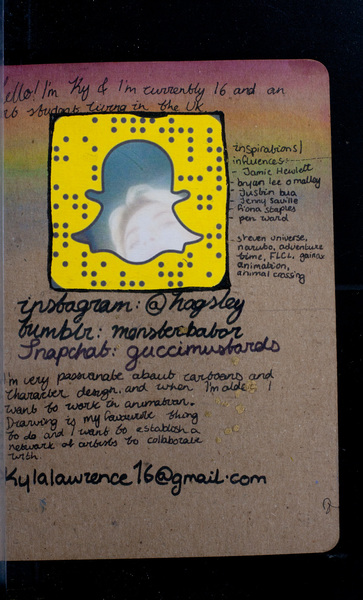 ello! I'm Ky & I'm currently 16 and an
student living in the UK
inspirations/
influences:
- Jamie Hewlett
- bryan lee o malley
- Justin bua
- Jenny Saville
- fiona staples
- pen ward
- steven universe,
naruto, adventure
time, FLCL, gainax
animation,
animal crossing
instagram: @hogsley
tumblr: monsterbabor
Snapchat: guccimustards
I'm very passionate about cartoons and
character design. and when I'm older I
want to work in animation.
Drawing is my favourite thing
to do and I want to establish a
network of artists to collaborate
with.
kylalawrence16@gmail.com